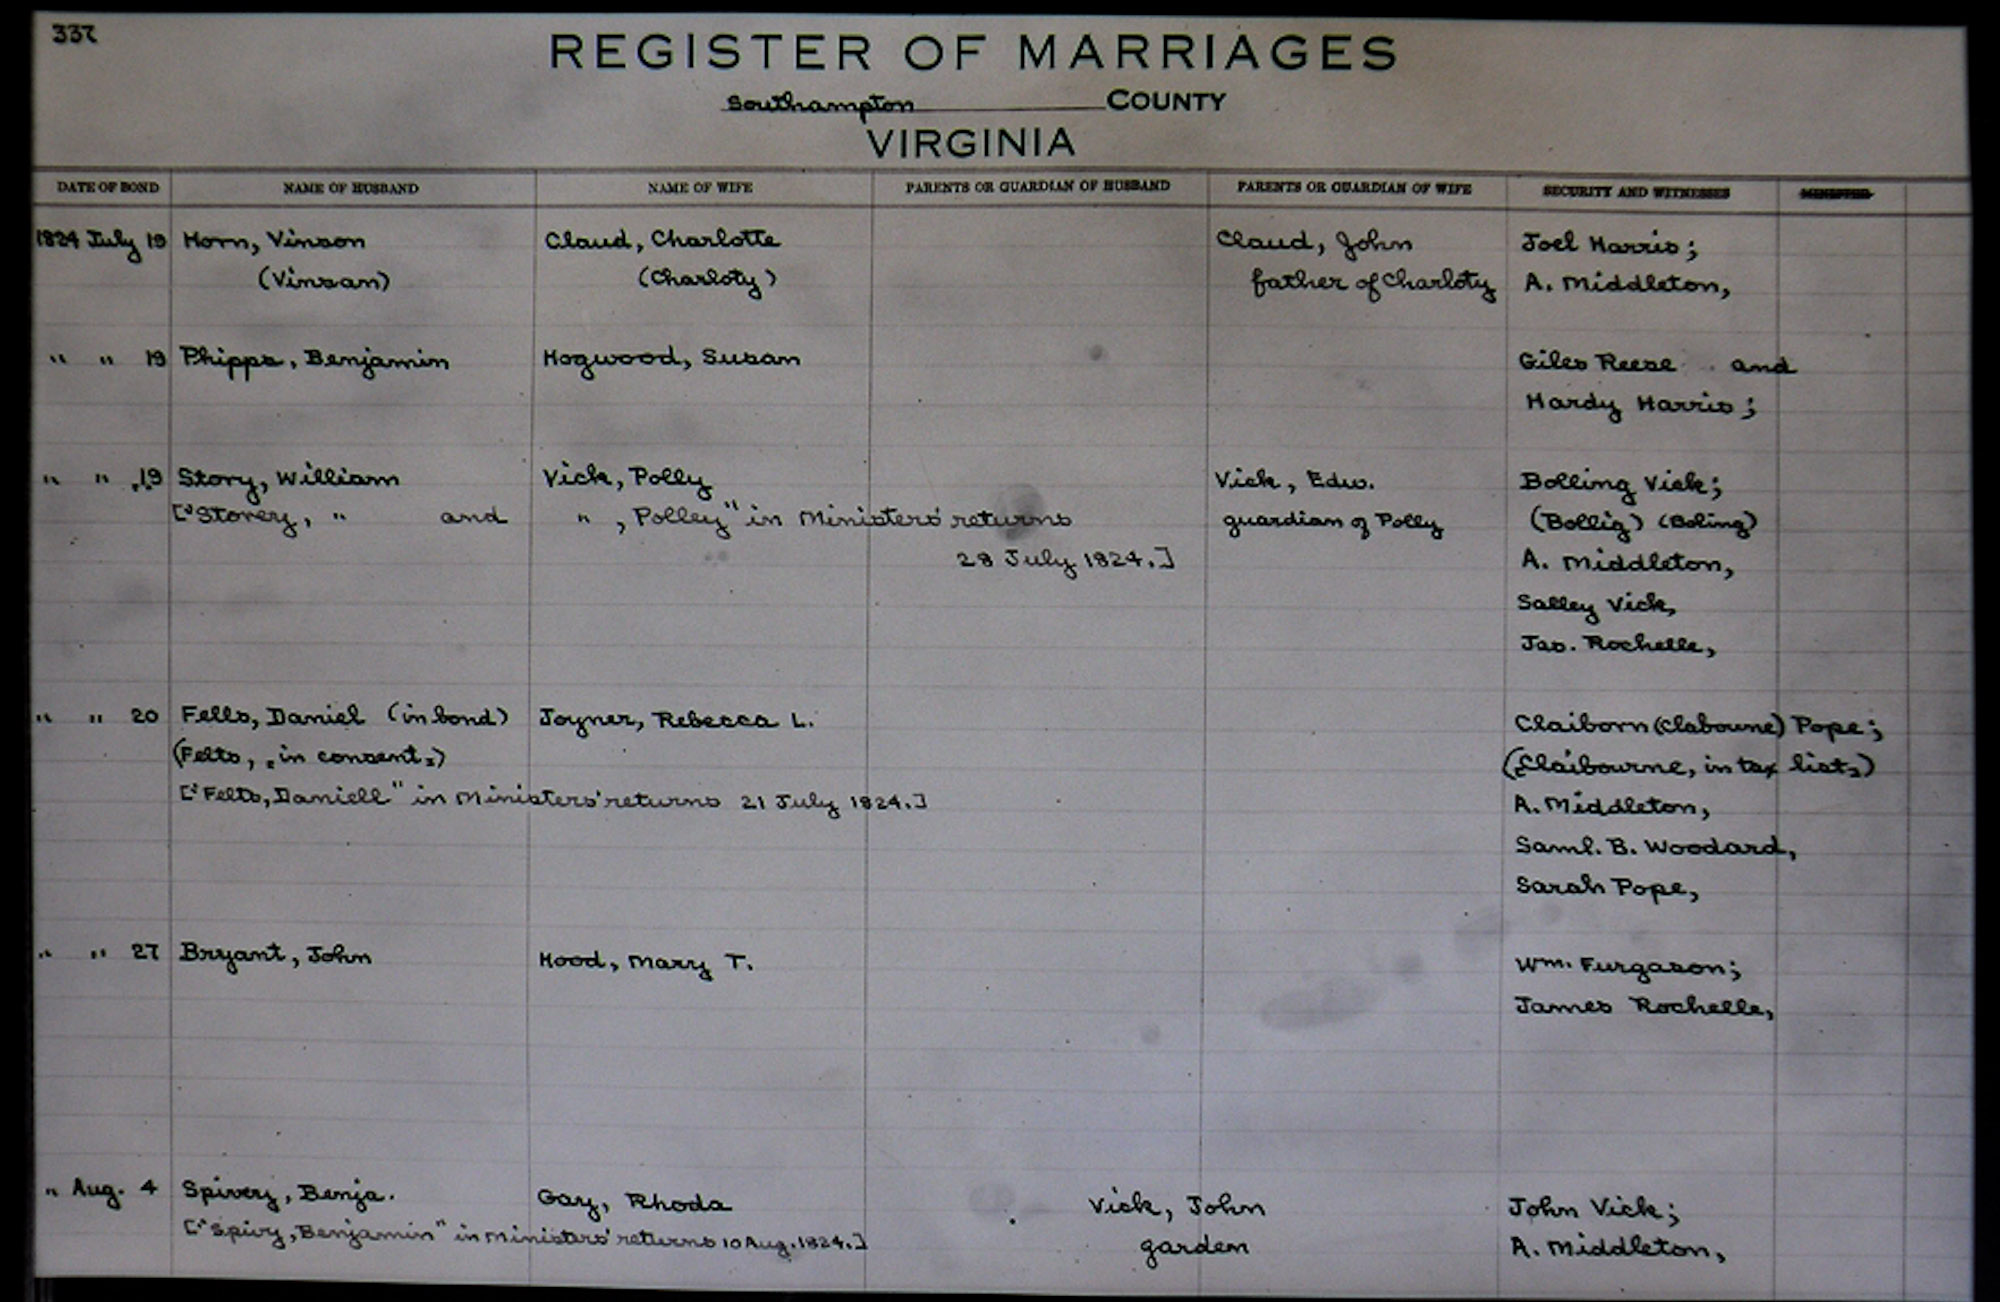 337
REGISTER OF MARRIAGES
Southampton COUNTY
VIRGINIA
DATE OF BOND NAME OF HUSBAND NAME OF WIFE PARENTS OR GUARDIAN OF HUSBAND PARENTS OR GUARDIAN OF WIFE SECURITY AND WITNESSES MINISTER
1824 July 19 Horn, Vinson Claud, Charlotte Claud, John Joel Harris;
(Vinsan) (Charloty) father of Charloty A. Middleton,
" " 19 Phipps, Benjamin Hogwood, Susan Giles Reese and
Hardy Harris;
" " 19 Story, William Vick, Polly Vick, Edw. Bolling Vick;
["Storey, " and " , Polley" in Ministers' returns guardian of Polly (Bollig) (Boling)
28 July 1824.] A. Middleton,
Salley Vick,
Jas. Rochelle,
" " 20 Fells, Daniel (in bond) Joyner, Rebecca L. Claiborn (Clabourne) Pope;
(Felts, in consent,) (Claibourne, in tax lists)
["Felts, Daniell" in Ministers' returns 21 July 1824.] A. Middleton,
Saml. B. Woodard,
Sarah Pope,
" " 27 Bryant, John Hood, Mary T. Wm. Furgason;
James Rochelle,
" Aug. 4 Spivey, Benja. Gay, Rhoda Vick, John John Vick;
["Spivy, Benjamin" in Ministers' returns 10 Aug. 1824.] garden A. Middleton,